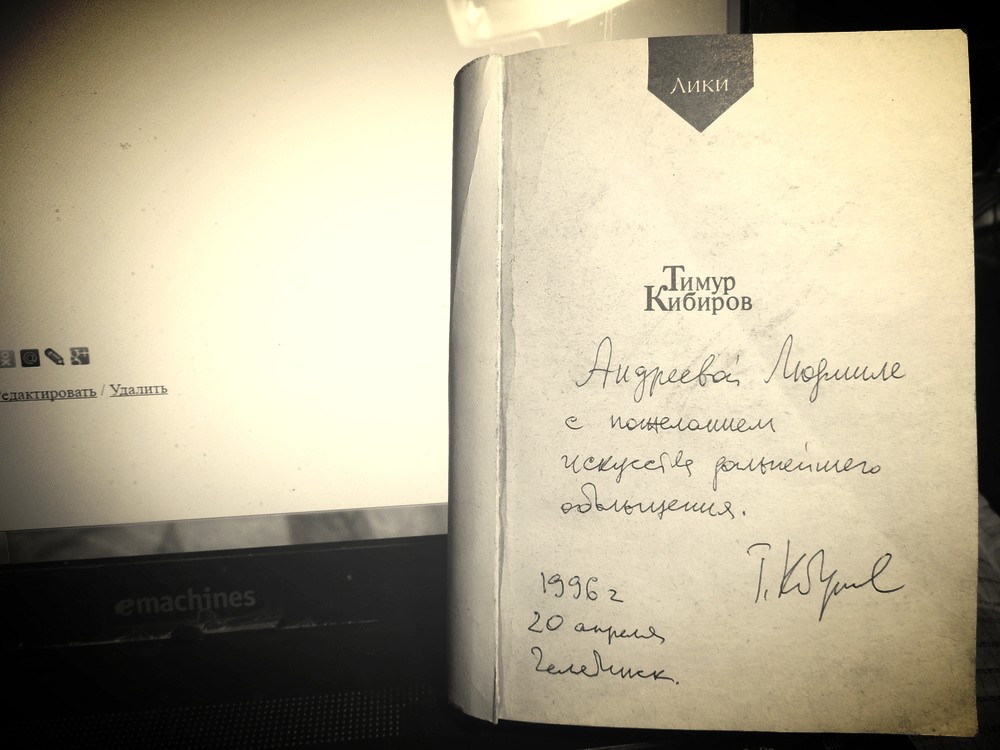 Лики
Тимур
Кибиров
Андреевой Людмиле
с пожеланием
искусств дальнейшего
обольщения.
Т. Кибиров
1996 г
20 апреля
Челябинск.
едактировать / Удалить
emachines